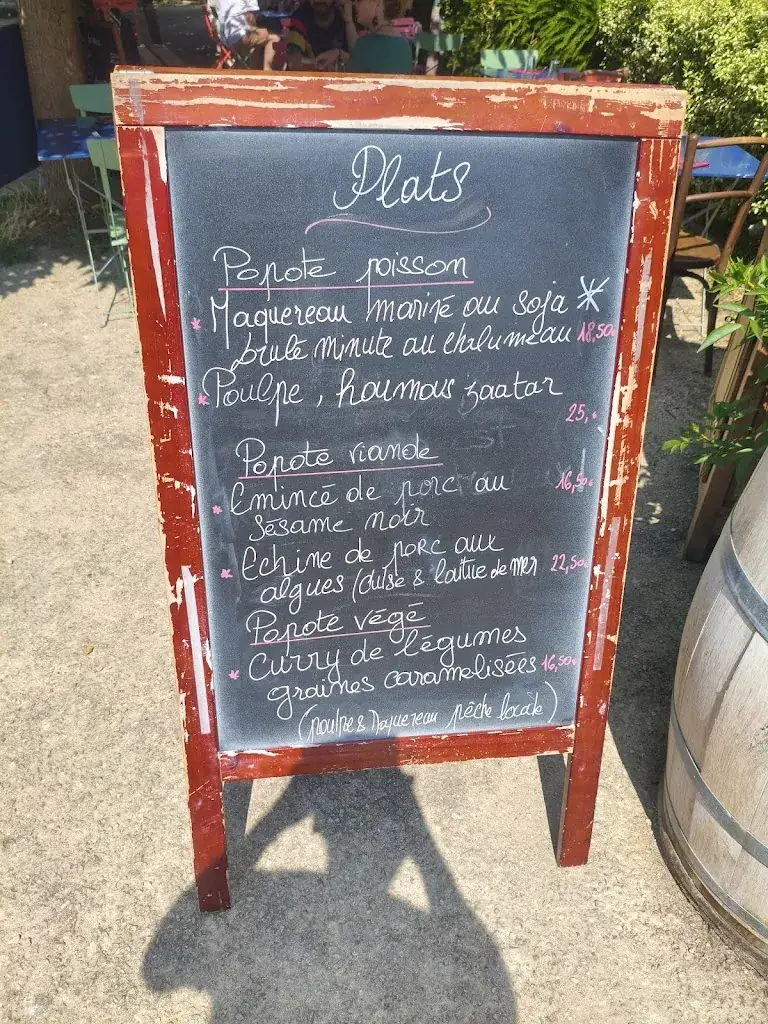 Plats
Popote poisson
* Maquereau mariné au soja *
brulé minute au chalumeau 18,50
* Poulpe, houmous zaatar
25,
Popote viande
* Emincé de porc au 16,50
sésame noir
* Echine de porc aux
algues (dulse & laitue de mer 22,50
Popote végé
* Curry de légumes
graines caramelisées 16,50
(poulpe & Maquereau pêche locale)